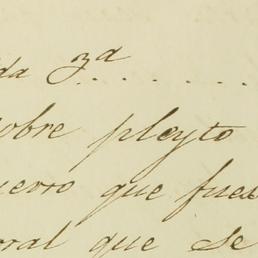 da 3ª . . . . . . .
sobre pleyto
que fues
oral que se